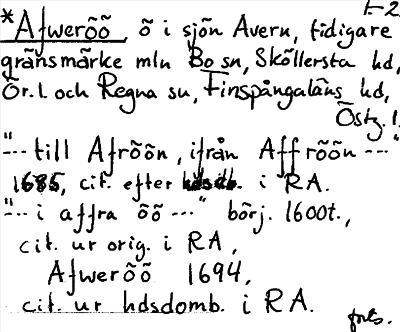 1-2
*Afweröö ö i sjön Avern, tidigare
gränsmärke mln Bo sn, Sköllersta hd,
Ör. l. och Regna sn, Finspångaläns hd,
Östg. l.
"--- till Afröön, ifrån Affröön ---"
1685, cit. efter hdsdb. i RA.
"--- i affra öö ---" börj. 1600t.,
cit. ur orig. i RA,
Afweröö 1694,
cit. ur hdsdomb. i RA.
forts.